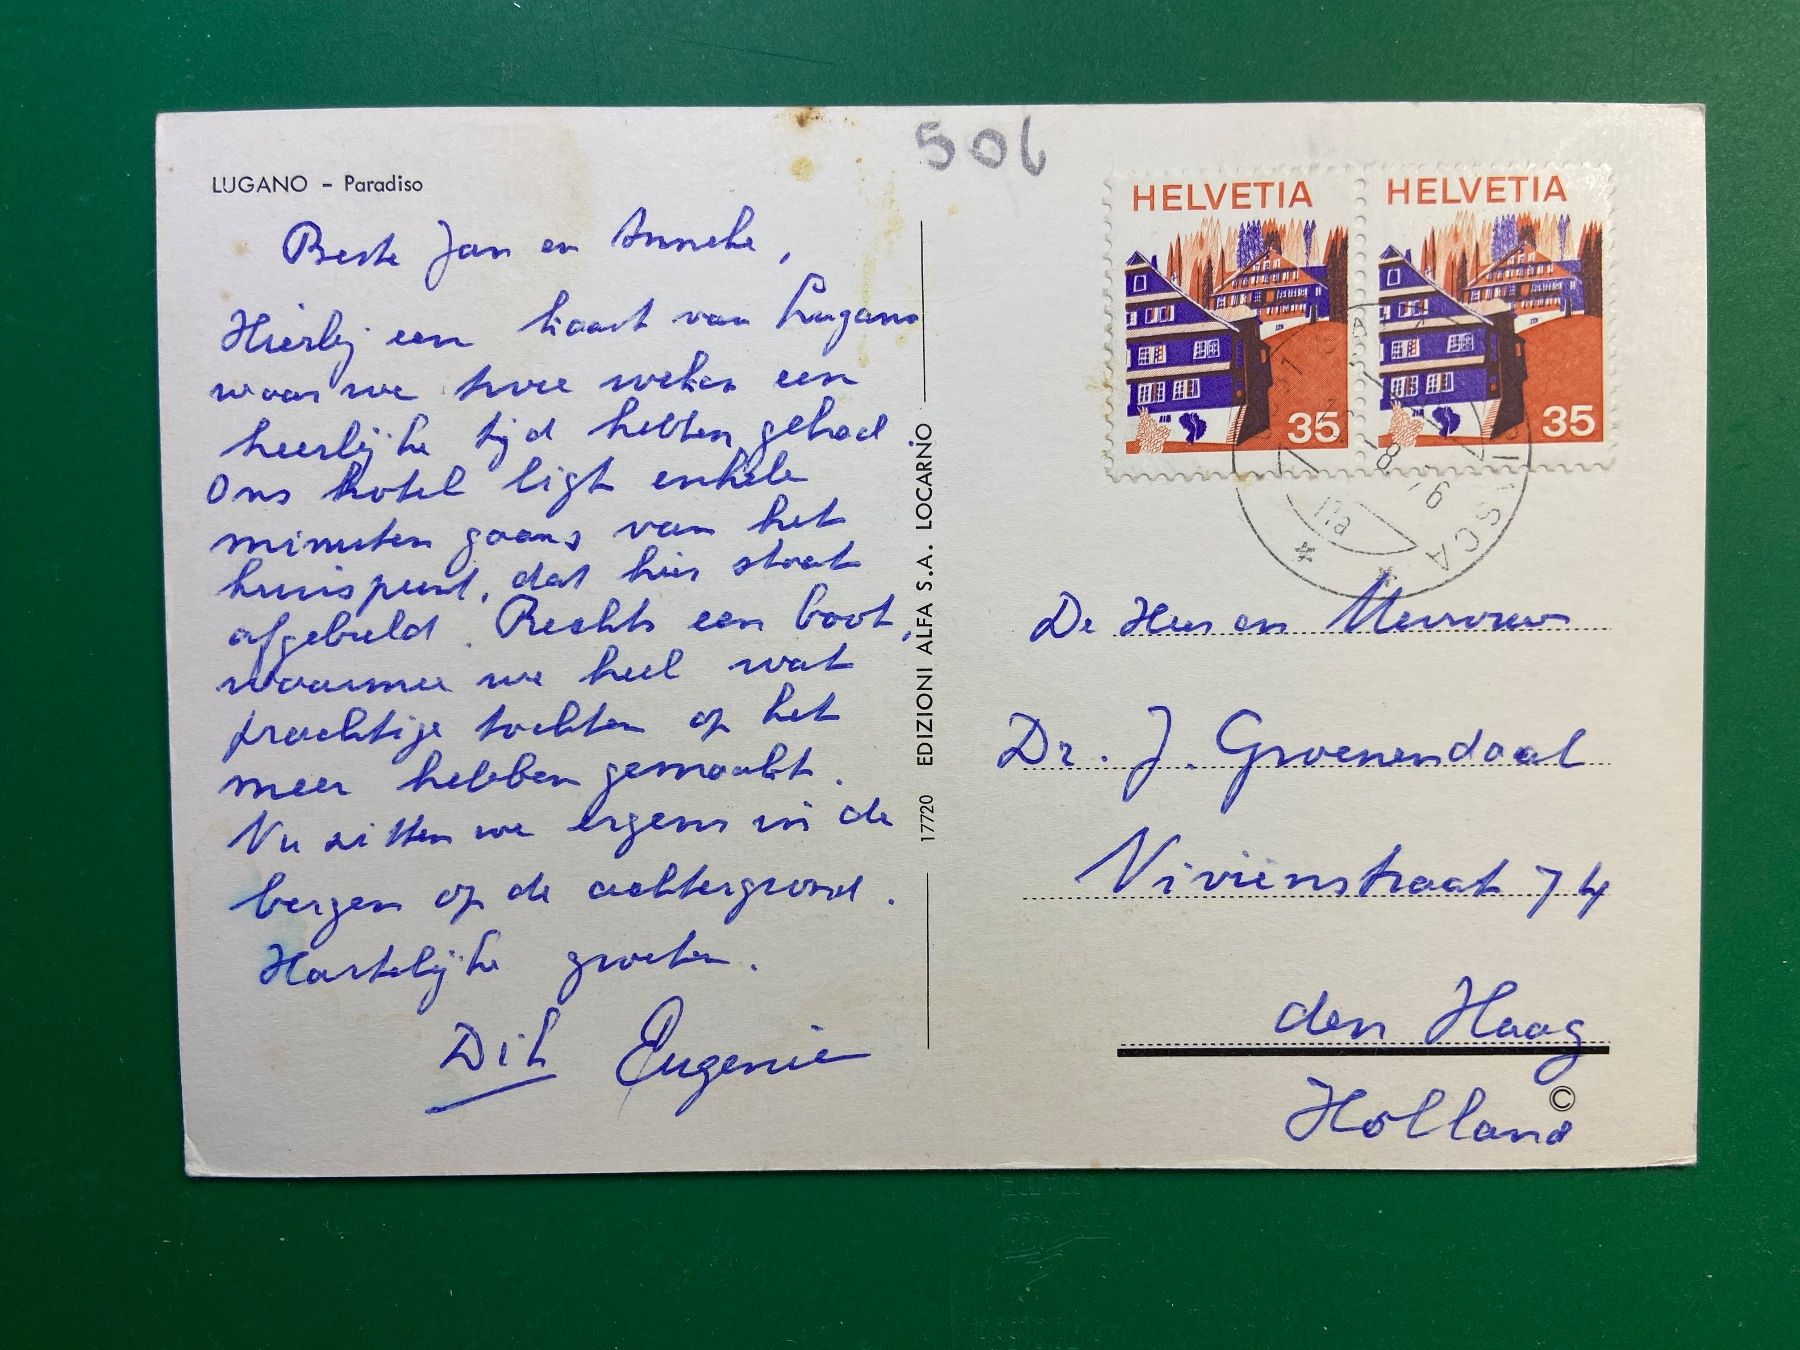 506
LUGANO - Paradiso
Beste Jan en Anneke,
Hierbij een kaart van Lugano
waar we twee weken een
heerlijke tijd hebben gehad.
Ons hotel ligt enkele
minuten gaans van het
kruispunt, dat hier staat
afgebeeld. Rechts een boot,
waarmee we heel wat
prachtige tochten op het
meer hebben gemaakt.
Nu zitten we ergens in de
bergen op de achtergrond.
Hartelijke groeten.
Dik Eugenie
17720 EDIZIONI ALFA S.A. LOCARNO
HELVETIA
35
HELVETIA
35
De Heer en Mevrouw
Dr. J. Groenendaal
Viviënstraat 74
den Haag
Holland
©